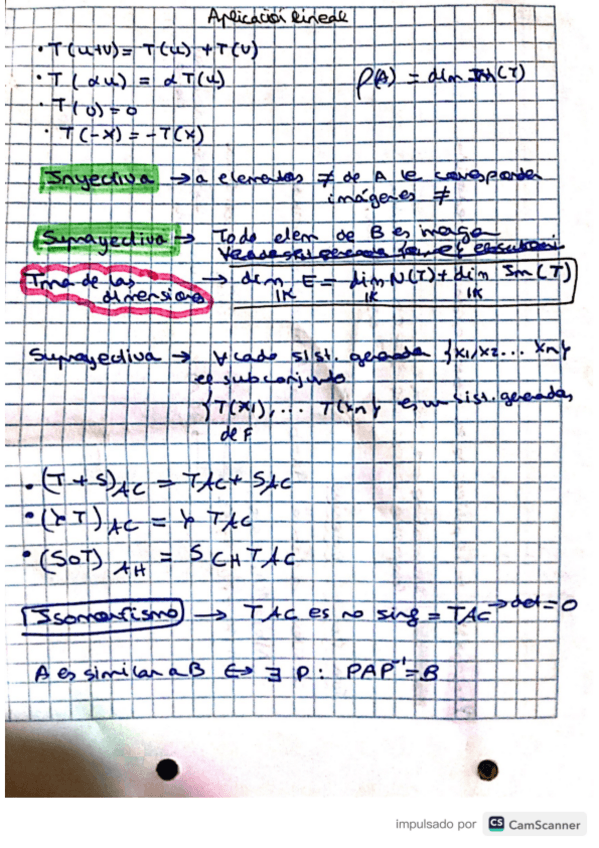 Aplicación lineal
• T(u+v) = T(u) + T(v)
• T(αu) = αT(u)
ρ(A) = dim Im(T)
• T(0) = 0
• T(-x) = -T(x)
Inyectiva → a elementos ≠ de A le corresponden
imágenes ≠
Suprayectiva → Todo elem de B es imagen
Tma de las → dim E = dim N(T) + dim Im(T)
dimensiones IK IK IK
Suprayectiva → ∀ cada sist. generador {x1, x2 ... xn}
el subconjunto
{T(x1), ... T(xn)} es un sist. generador
de F
• (T + S)AC = TAC + SAC
• (γT)AC = γ TAC
• (SoT)AH = SCH TAC
Isomorfismo → TAC es no sing = TAC → det = 0
A es similar a B ⟺ ∃ P : PAP⁻¹ = B
impulsado por CS CamScanner